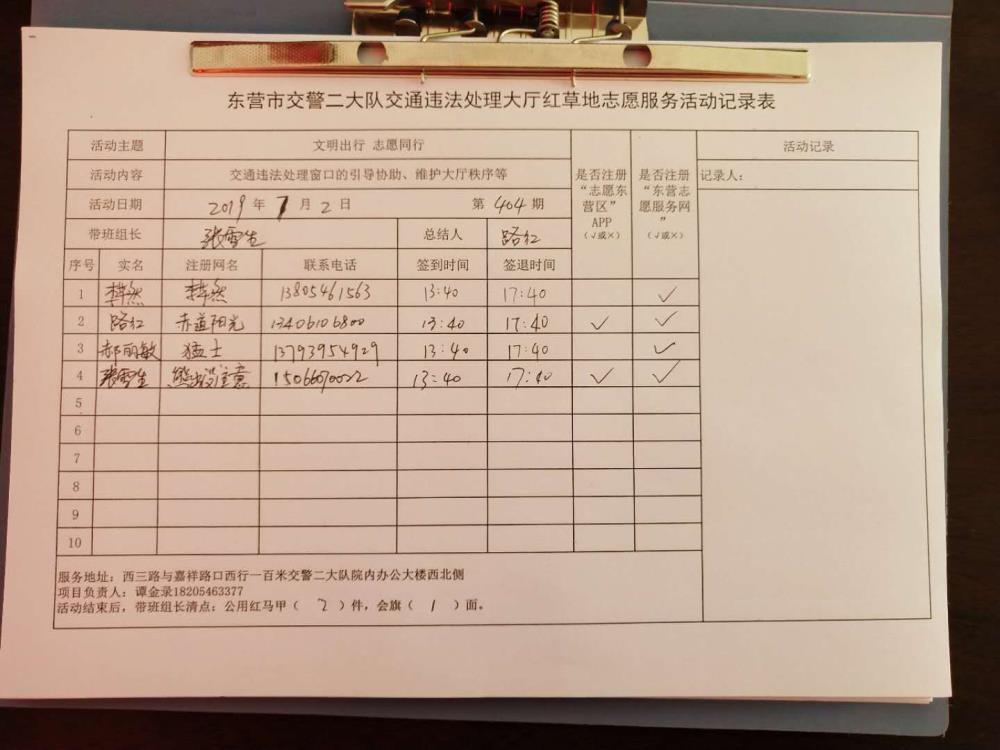 东营市交警二大队交通违法处理大厅红草地志愿服务活动记录表
活动主题 文明出行 志愿同行 是否注册“志愿东营区”APP（√或×） 是否注册“东营志愿服务网”（√或×） 活动记录
活动内容 交通违法处理窗口的引导协助、维护大厅秩序等 记录人：
活动日期 2019 年 7 月 2 日 第 464 期
带班组长 张雪生 总结人 路红
序号 实名 注册网名 联系电话 签到时间 签退时间
1 13805461563 13:40 17:40 ✓
2 路红 赤道阳光 13406106800 13:40 17:40 ✓ ✓
3 郝丽敏 猛士 13793954929 13:40 17:40 ✓
4 张雪生 熊出没注意 15066070022 13:40 17:40 ✓ ✓
5
6
7
8
9
10
服务地址：西三路与嘉祥路口西行一百米交警二大队院内办公大楼西北侧
项目负责人：谭金录18205463377
活动结束后，带班组长清点：公用红马甲（ 2 ）件，会旗（ 1 ）面。